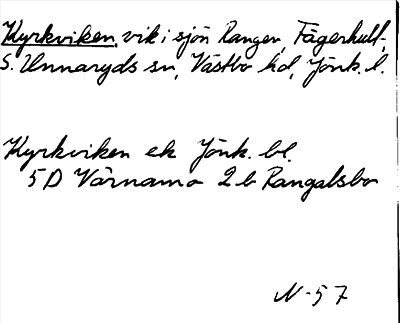 Kyrkviken, vik i sjön Rangen, Fägerhult,
S. Unnaryds sn, Västbo hd, Jönk. l.
Kyrkviken ek Jönk. bl.
5D Värnamo 2b Rangalsbo
N-57